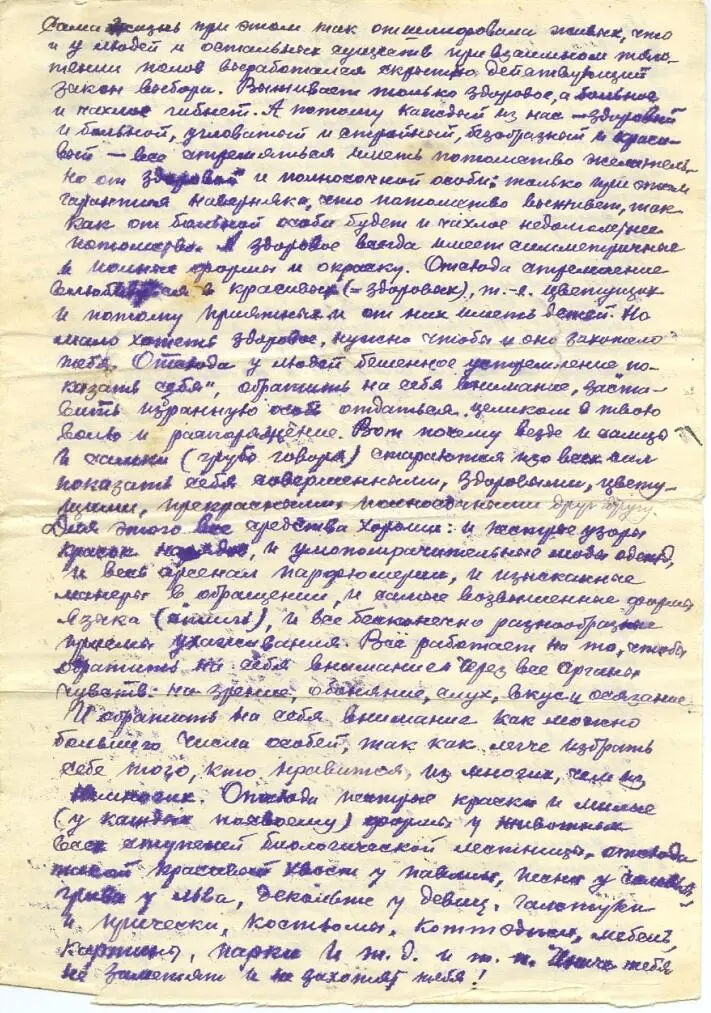 Сама жизнь при этом так отшлифовала живых, что
и у людей и остальных существ при взаимном тяго-
тении полов выработался скрытно действующий
закон выбора. Выживает только здоровое, а больное
и чахлое гибнет. А потому каждый из нас – здоровый
и больной, угловатый и стройный, безобразный и краси-
вый – все стремяться иметь потомство желатель-
но от здоровой и полносочной особи: только при этом
гарантия наверняка, что потомство выживет, так
как от больной особи будет и чахлое недолговечное
потомство. А здоровое всегда имеет симметричные
и полные формы и окраску. Отсюда стремление
влюбиться в красивых (=здоровых), т.-е. цветущих
и потому приятных и от них иметь детей. Но
мало хотеть здоровое, нужно чтобы и оно захотело
тебя. Отсюда у людей бешенное устремление "по-
казать себя", обратить на себя внимание, заста-
вить избранную особь отдаться целиком в твою
волю и распоряжение. Вот почему везде и самцы
и самки (грубо говоря) стараются изо всех сил
показать себя совершенными, здоровыми, цвету-
щими, прекрасными, полносочными друг другу.
Для этого все средства хороши: и пестрые узоры
красок наряда, и умопомрачительные моды одежд,
и весь арсенал парфюмерии, и изысканные
манеры в обращении, и самые возвышенные формы
языка (стихи), и все бесконечно разнообразные
приемы ухаживания. Все работает на то, чтобы
обратить на себя внимание через все органы
чувств: на зрение, обоняние, слух, вкус и осязание.
И обратить на себя внимание как можно
большего числа особей, так как легче избрать
себе того, кто нравится, из многих, чем из
немногих. Отсюда пестрые краски и милые
(у каждых по своему) формы у животных
всех ступеней биологической лестницы, отсюда
такой красивый хвост у павлина, песня у соловья,
грива у льва, декольте у девиц, галстуки
и прически, костюмы, коттеджи, мебель,
картины, парки и т.д. и т.п. Иначе тебя
не заметят и не захотят тебя!